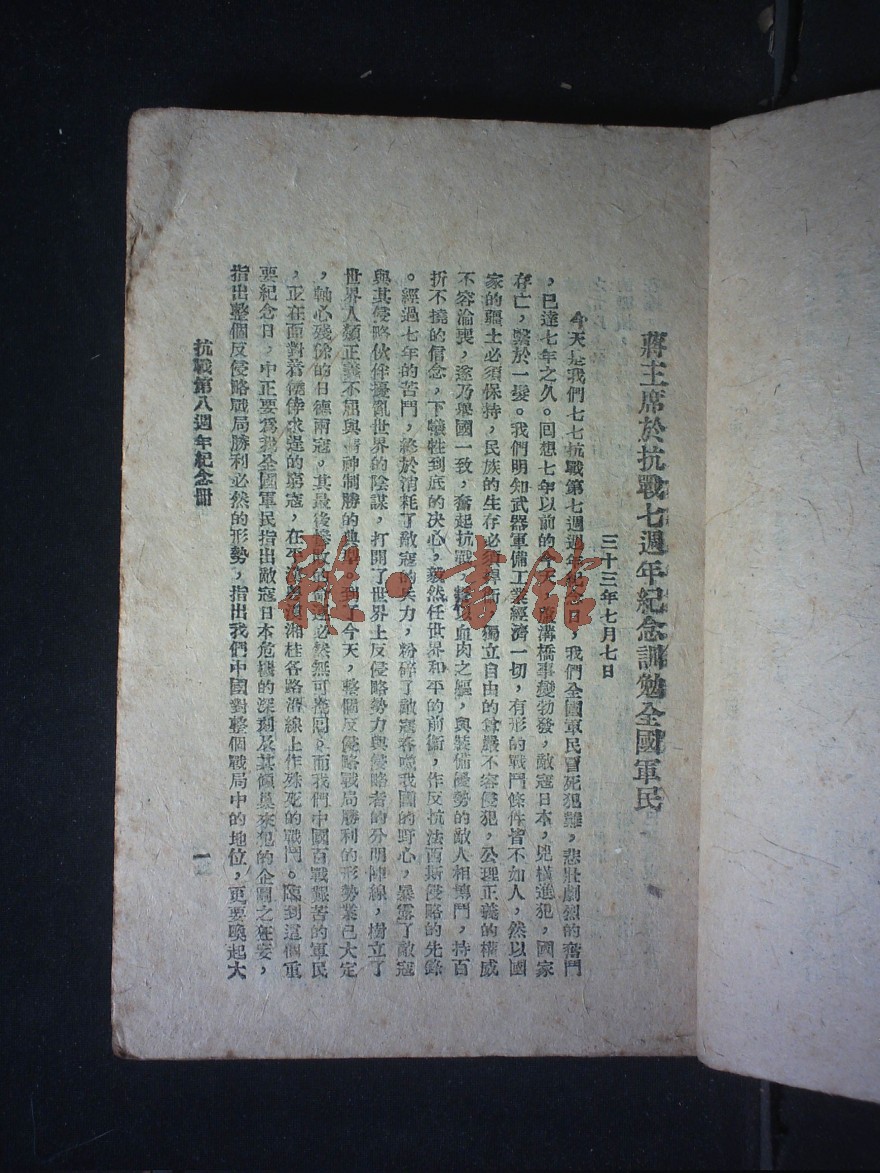 蔣主席於抗戰七週年紀念訓勉全國軍民
三十三年七月七日
今天是我們七七抗戰第七週年紀念日，我們全國軍民冒死犯難，悲壯劇烈的奮鬥
，已達七年之久。回想七年以前的今天，蘆溝橋事變勃發，敵寇日本，兇橫進犯，國家
存亡，繫於一髮。我們明知武器軍備工業經濟一切，有形的戰鬥條件皆不如人，然以國
家的疆土必須保持，民族的生存必須，獨立自由的尊嚴不容侵犯，公理正義的權威
不容淪喪，遂乃舉國一致，奮起抗戰，血肉之軀，與裝備優勢的敵人相搏鬥，持百
折不撓的信念，下犧牲到底的決心，毅然任世界和平的前衛，作反抗法西斯侵略的先鋒
。經過七年的苦鬥，終於消耗了敵寇的兵力，粉碎了敵寇吞噬我國的野心，暴露了敵寇
與其侵略伙伴擾亂世界的陰謀，打開了世界上反侵略勢力與侵略者的分明陣線，樹立了
世界人類正義不屈與精神制勝的典型，到了今天，整個反侵略戰局勝利的形勢業已大定
，軸心殘餘的日德兩寇，其最後慘敗的命運必然無可挽回。而我們中國百戰艱苦的軍民
，正在面對着僥倖求逞的窮寇，在平漢粵漢湘桂各路沿線上作殊死的戰鬥。臨到這個重
要紀念日，中正要為我全國軍民指出敵寇日本危機的深刻及其傾巢來犯的企圖之狂妄，
指出整個反侵略戰局勝利必然的形勢，指出我們中國對整個戰局中的地位，更要喚起大
抗戰第八週年紀念冊
一
雜·書館